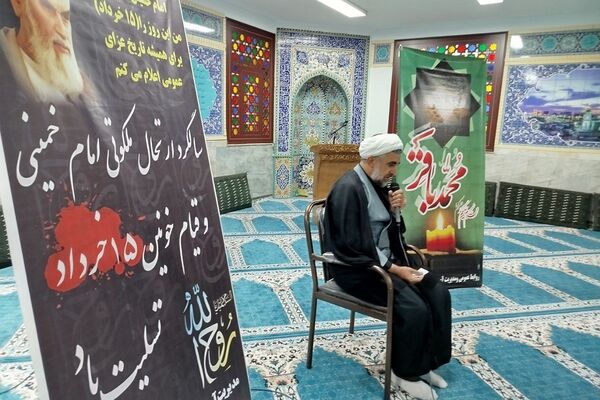 امام خمینی
من این روز را(۱۵ خرداد)
برای همیشه تاریخ عزای
عمومی اعلام می کنم
سالگرد ارتحال ملکوتی امام خمینی
و قیام خونین ۱۵ خرداد
تسلیت باد
روح الله
مدیریت
محمد باقر
روابط عمومی ومدیریت